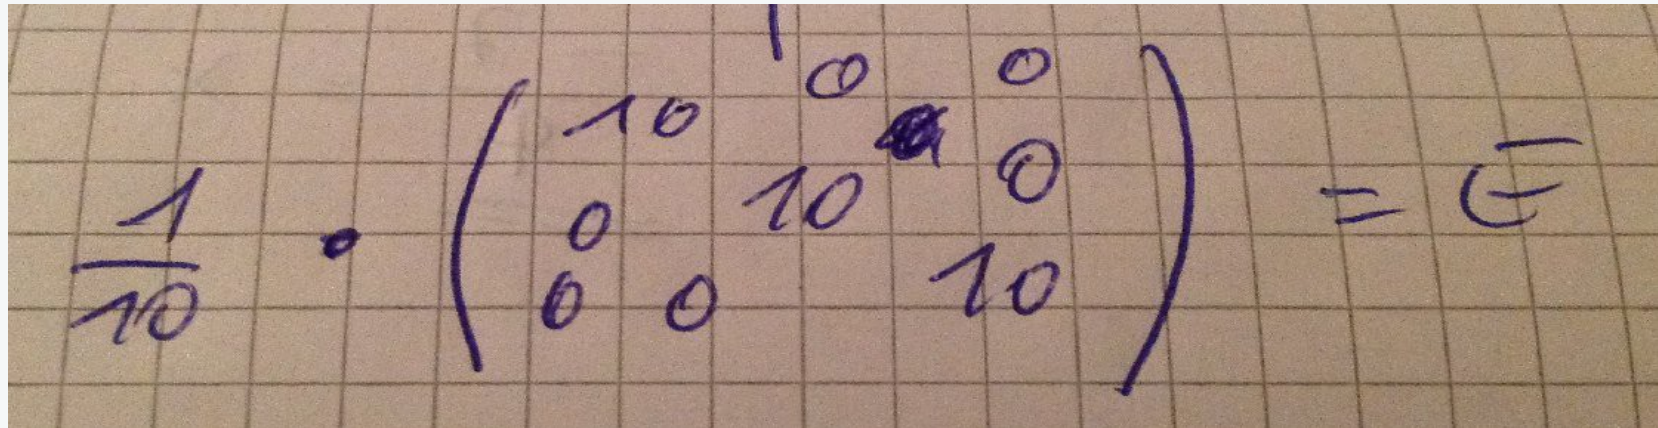 1/10 · ( 10 0 0
0 10 0
0 0 10 ) = E